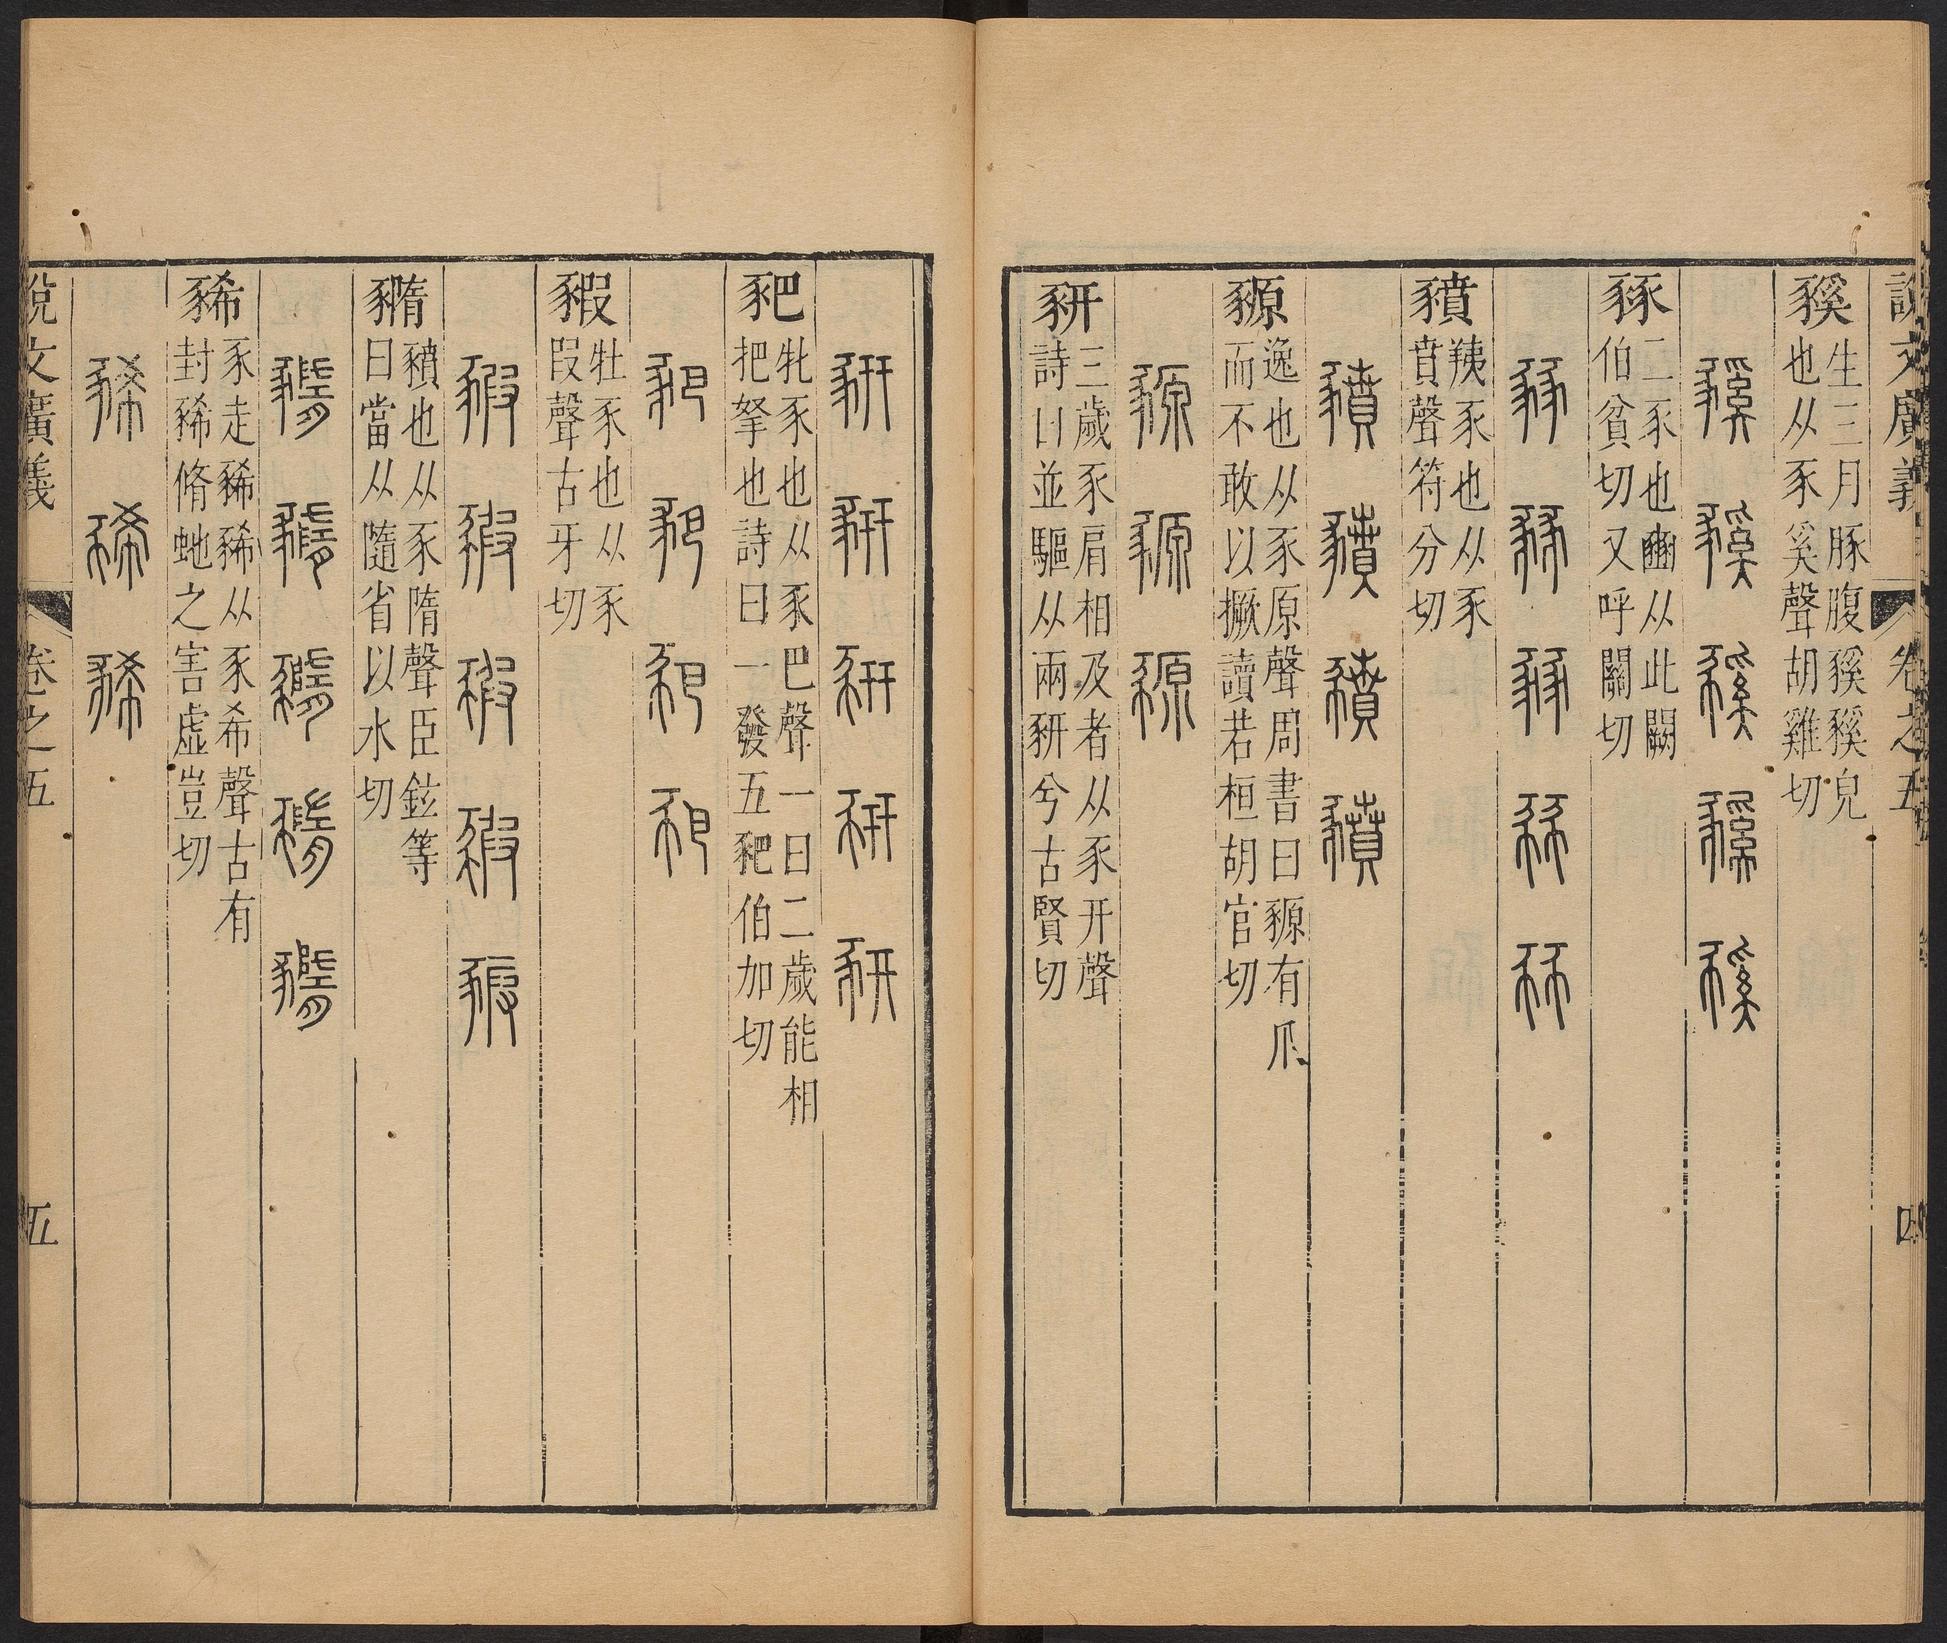 說文廣義 卷之五 四
豯
生三月豚腹豯豯皃
也从豕奚聲胡雞切
豯豯豯豯豯
豩
二豕也豳从此闕
伯貧切又呼關切
豩豩豩豩豩
豶
羠豕也从豕
賁聲符分切
豶豶豶豶
豲
逸也从豕原聲周書曰豲有爪
而不敢以撅讀若桓胡官切
豲豲豲
豣
三歲豕肩相及者从豕幵聲
詩曰並驅从兩豣兮古賢切
豣豣豣豣豣
豝
牝豕也从豕巴聲一曰二歲能相
把拏也詩曰一發五豝伯加切
豝豝豝豝
豭
牡豕也从豕
叚聲古牙切
豭豭豭豭豭
豵
豶也从豕隋聲臣鉉等
曰當从隨省以水切
豨
豕走豨豨从豕希聲古有
封豨脩虵之害虛豈切
豨豨豨
說文廣義 卷之五 五